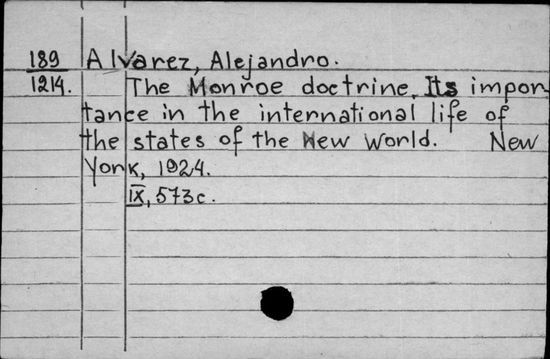 189 Alvarez, Alejandro.
1214. The Monroe doctrine. Its impor-
tance in the international life of
the states of the New World. New
York, 1924.
IX, 573c.